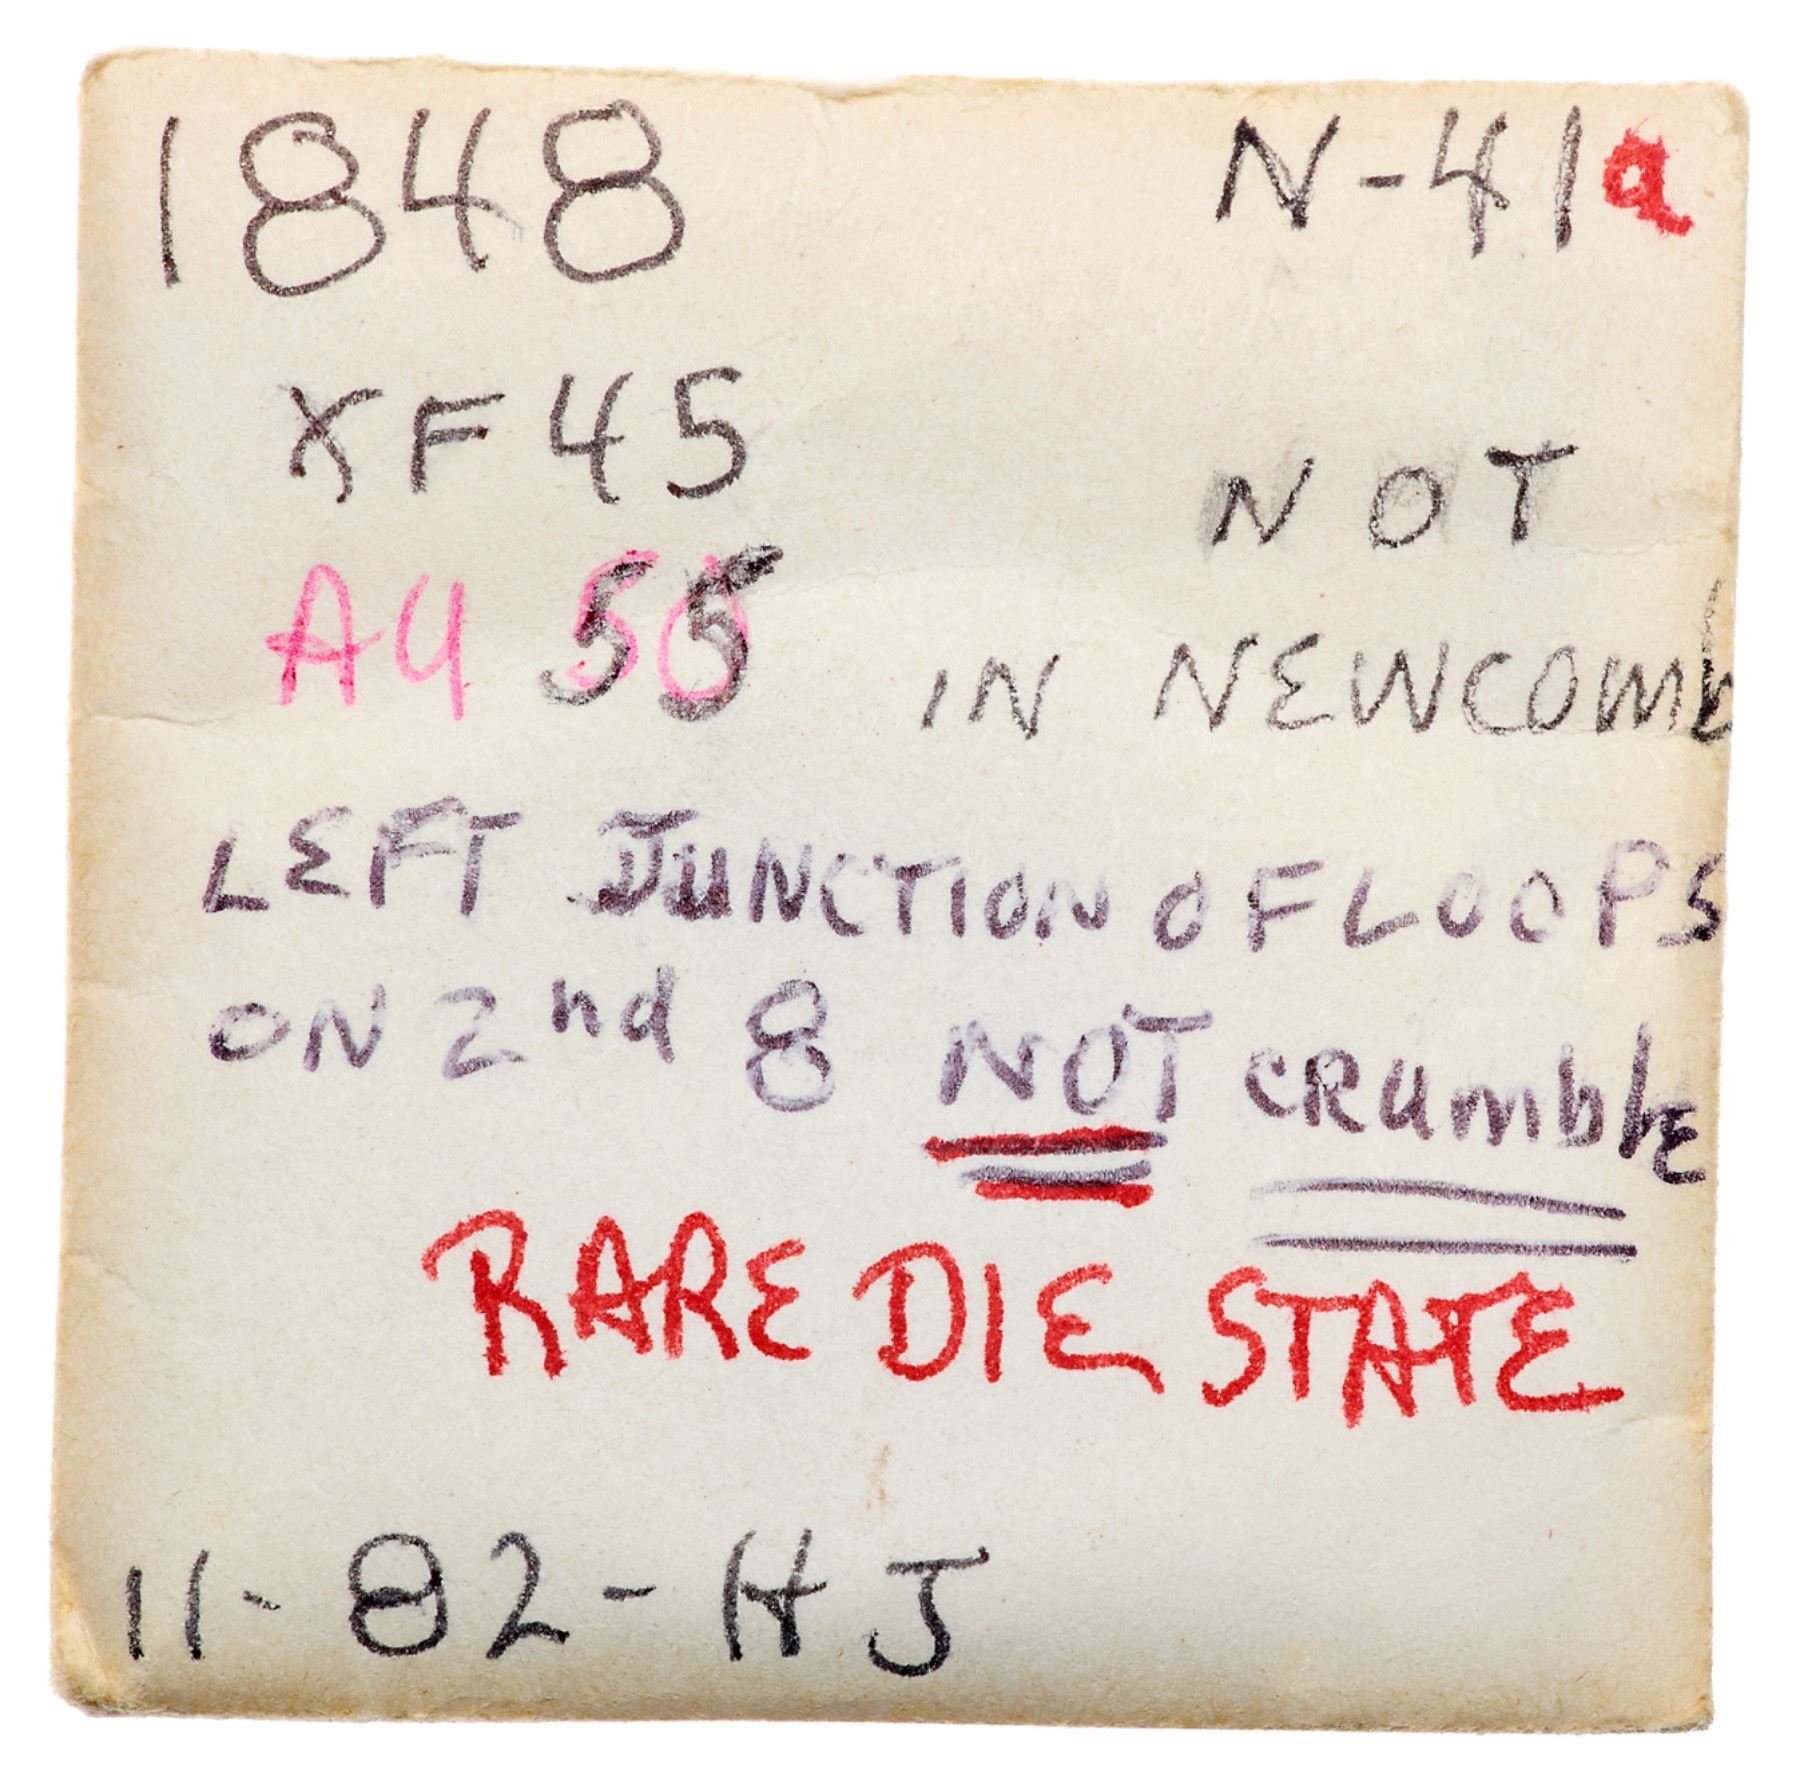 1848 N-41a
XF45
NOT
AU 55
IN NEWCOMb
LEFT JUNCTION OF LOOPS
ON 2nd 8 NOT CRumblE
RARE DIE STATE
11-82-HJ